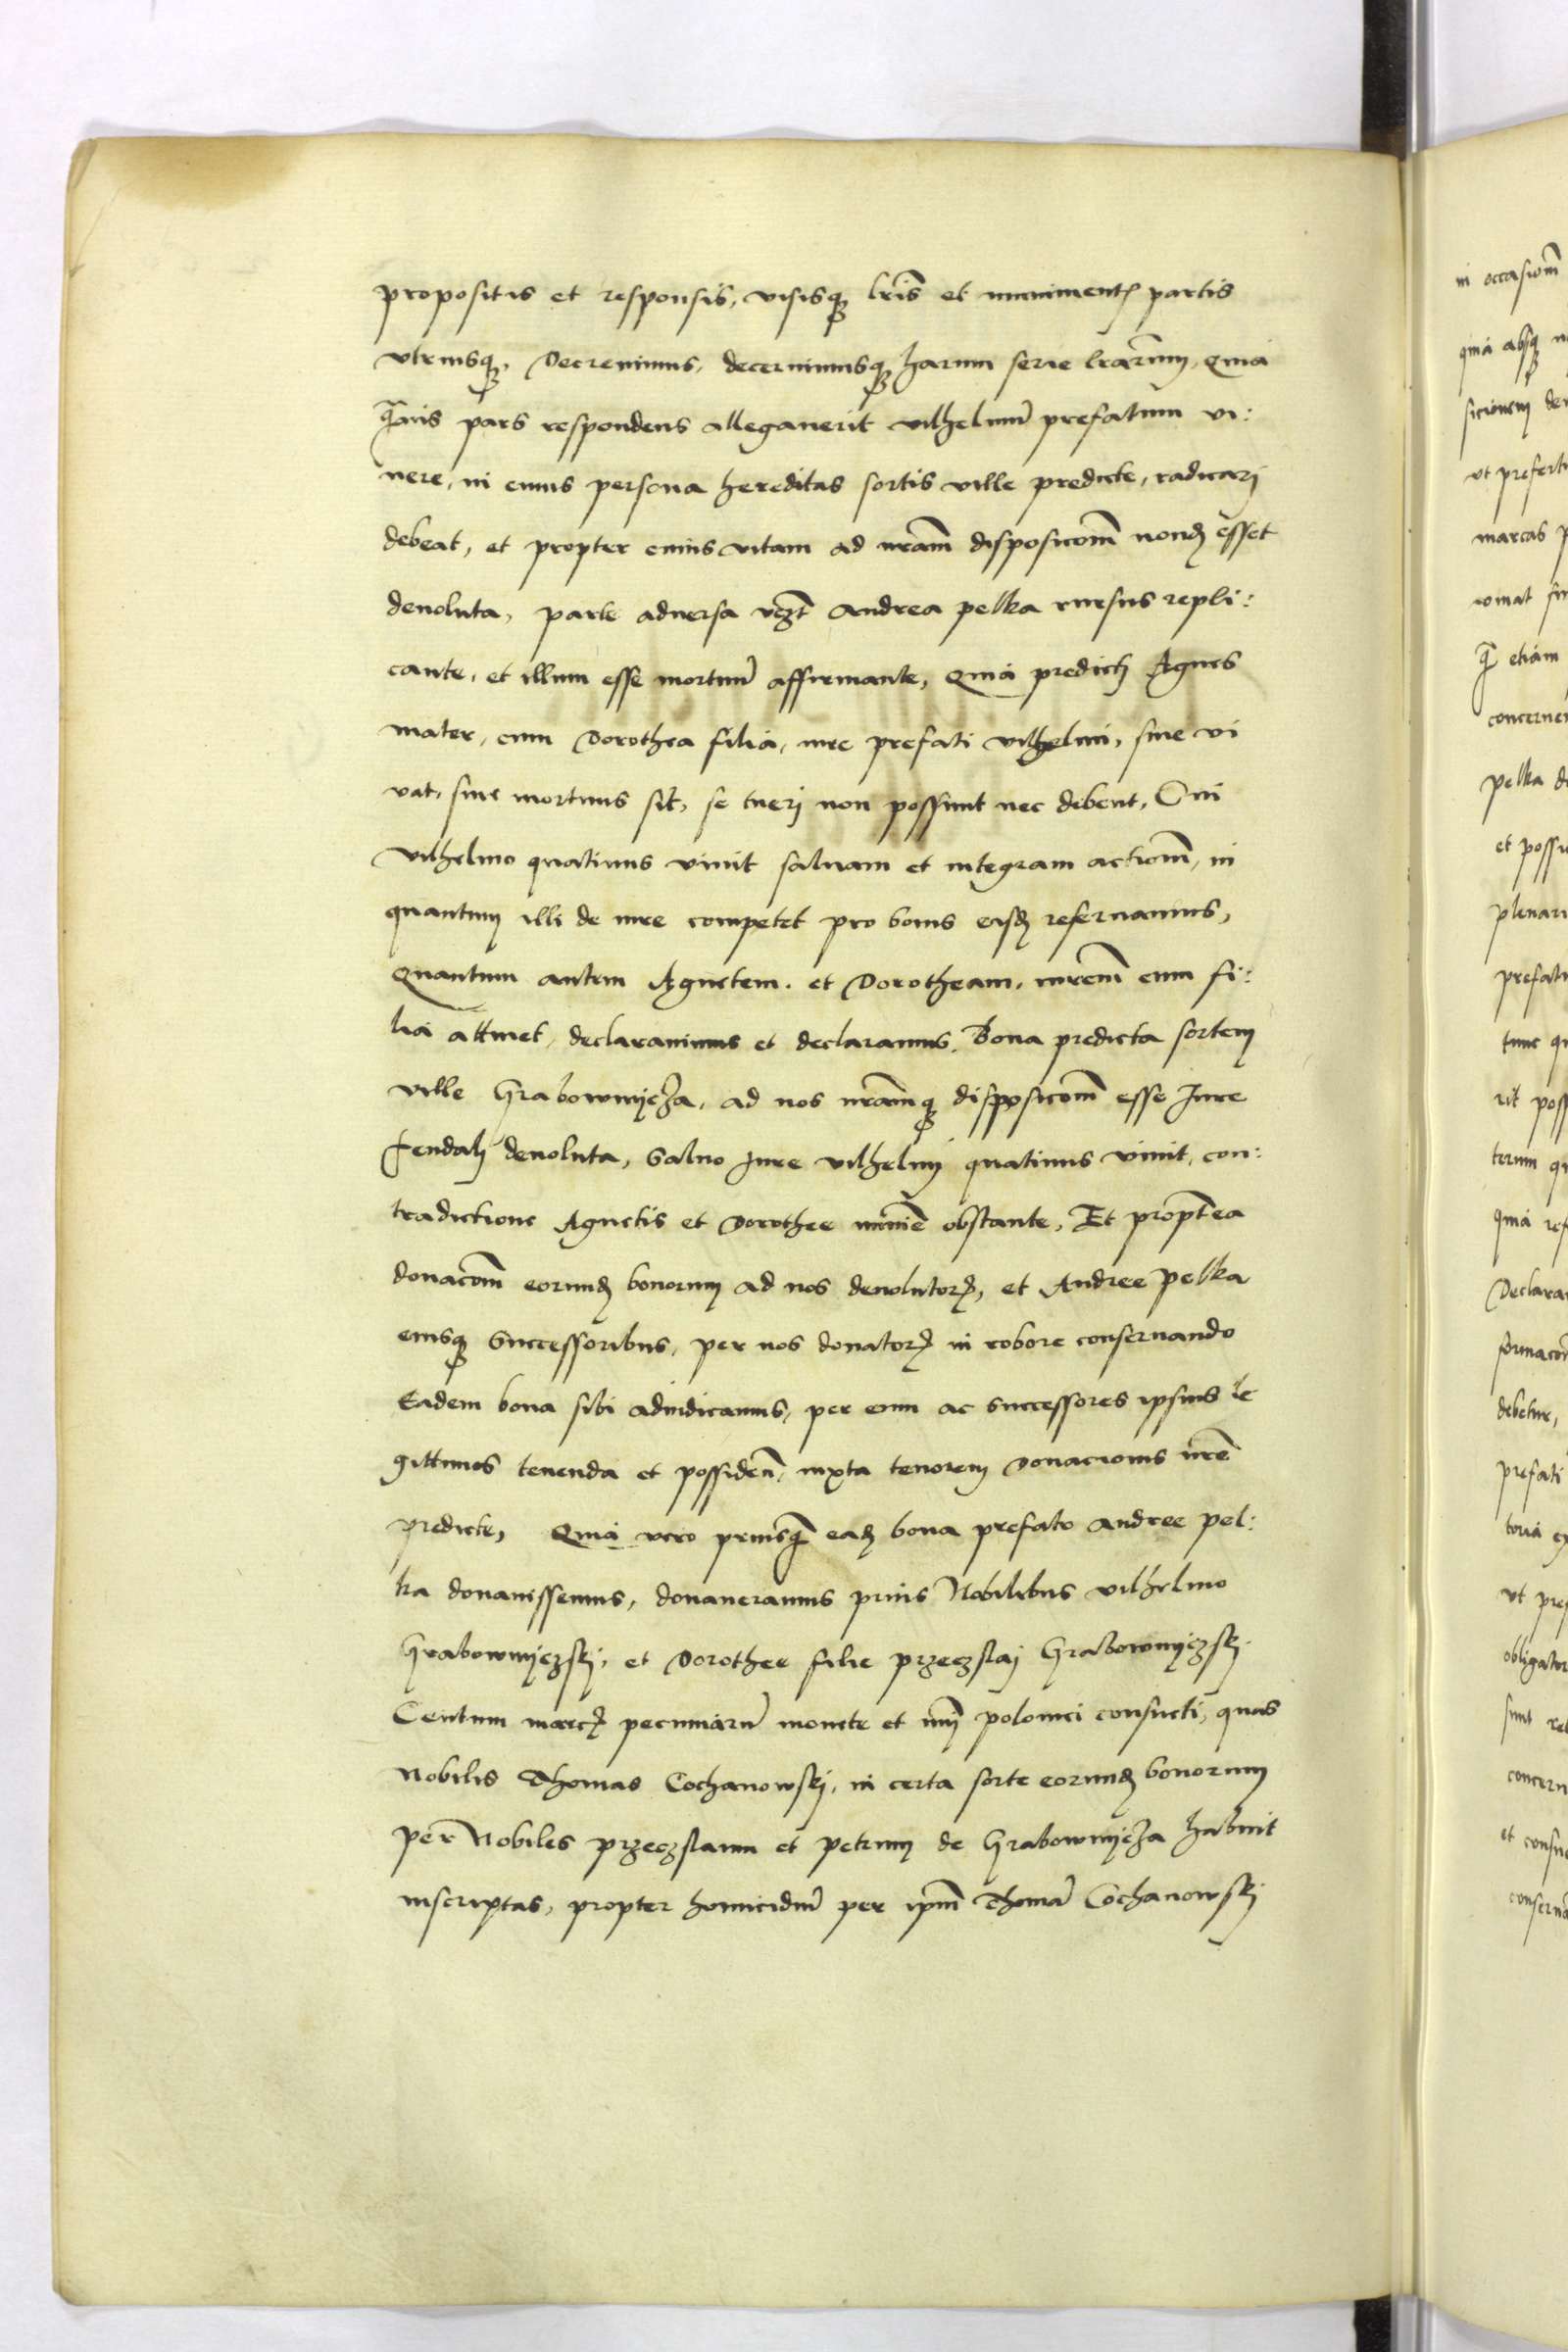 propositis et responsis, visisq lris et muniment partis
vtriusq, Decreuimus, decernimusq harum serie lrarum, quia
quis pars respondens allegauerit vilhelmu prefatum vi:
uere, in cuius persona hereditas sortis ville predicte, radicari
debeat, et propter cuius vitam ad nram disposicom nond esset
deuoluta, parte aduersa vzt Andrea pelka rursus repli:
cante, et illum esse mortuu affirmante, quia predict Agnes
mater, cum Dorothea filia, iure prefati vilhelmi, siue vi
vat, siue mortuus sit, se tueri non possunt nec debent, Cui
vilhelmo quatinus viuit saluam et integram actiom, in
quantum illi de iure competet pro bonis eisd reseruamus,
Quantum autem Agnetem. et Dorotheam, mrem cum fi:
lia attinet, declarauimus et declaramus. Bona predicta sortem
ville Grabownycza, ad nos nramq disposicom esse Jure
feudali deuoluta, saluo Jure vilhelmi quatinus viuit, con:
tradictione Agnetis et Dorothee minie obstante, Et proptea
donacom eorund bonorum ad nos deuolutor, et Andree pelka
eiusq successoribus, per nos donator in robore conseruando
Eadem bona sibi adiudicamus, per eum ac successores ipsius le
gittimos tenenda et possiden, iuxta tenorem donacionis nre
predicte, Quia vero priusq ead bona prefato Andree pel:
ka donauissemus, donaueramus prius Nobilibus vilhelmo
Grabownyczski, et Dorothee filie przeczslai Grabownyczski
Centum marc pecuniaru monete et nui polonici consueti, quas
Nobilis Thomas Cochanowski, in certa sorte eorund bonorum
per Nobiles przeczslaum et petrum de Grabownycza habuit
inscriptas, propter homicidiu per ipm Thoma Cochanowski
in occasiom
quia absq
ut prefert
marcas
q etiam
pelka
plenari
prefat
tunc
rit poss
Declara
debetur,
prefati
vt
obligator
sunt
concern